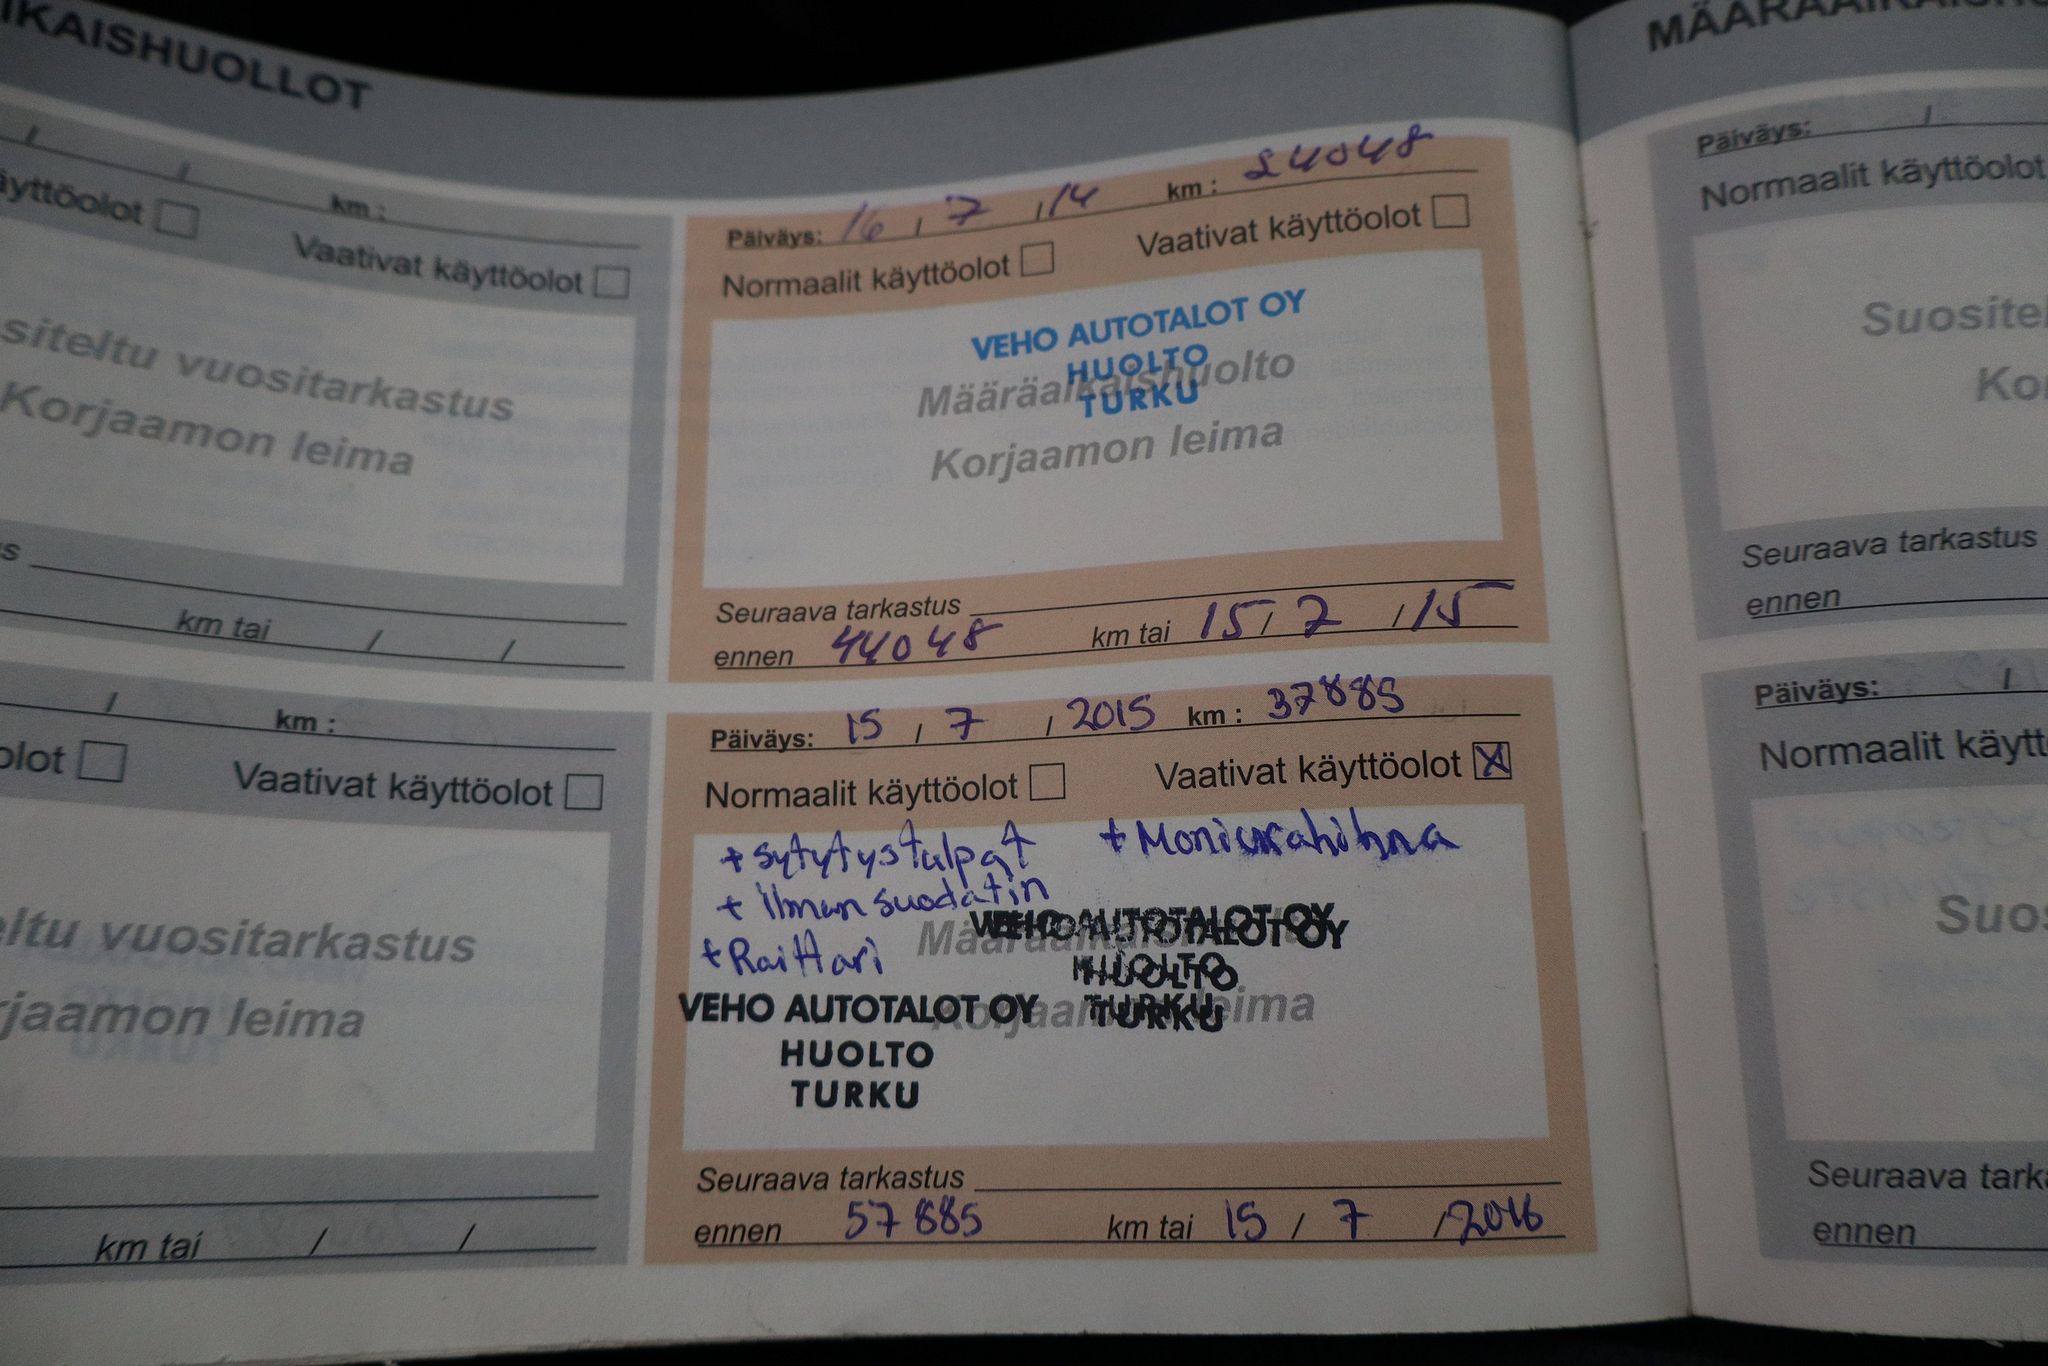 KAISHUOLLOT
/ / km :
käyttöolot Vaativat käyttöolot
siteltu vuositarkastus
Korjaamon leima
km tai / /
/ km :
olot Vaativat käyttöolot
eltu vuositarkastus
rjaamon leima
km tai / /
Päiväys: 16 / 7 / 14 km : 24048
Normaalit käyttöolot Vaativat käyttöolot
VEHO AUTOTALOT OY
HUOLTO
Määräaikaishuolto
TURKU
Korjaamon leima
Seuraava tarkastus
ennen 44048 km tai 15 / 7 / 15
Päiväys: 15 / 7 / 2015 km : 37885
Normaalit käyttöolot Vaativat käyttöolot X
+ sytytystulpat + Moniurahihna
+ ilmansuodatin
+ Raittari
VEHO AUTOTALOT OY
HUOLTO
TURKU
Määräaikaishuolto
Korjaamon leima
VEHO AUTOTALOT OY
HUOLTO
TURKU
Seuraava tarkastus
ennen 57885 km tai 15 / 7 / 2016
MÄÄRÄAIKAISHU
Päiväys: /
Normaalit käyttöolot
Suositel
Ko
Seuraava tarkastus
ennen
Päiväys: /
Normaalit käytt
Suos
Seuraava tark
ennen